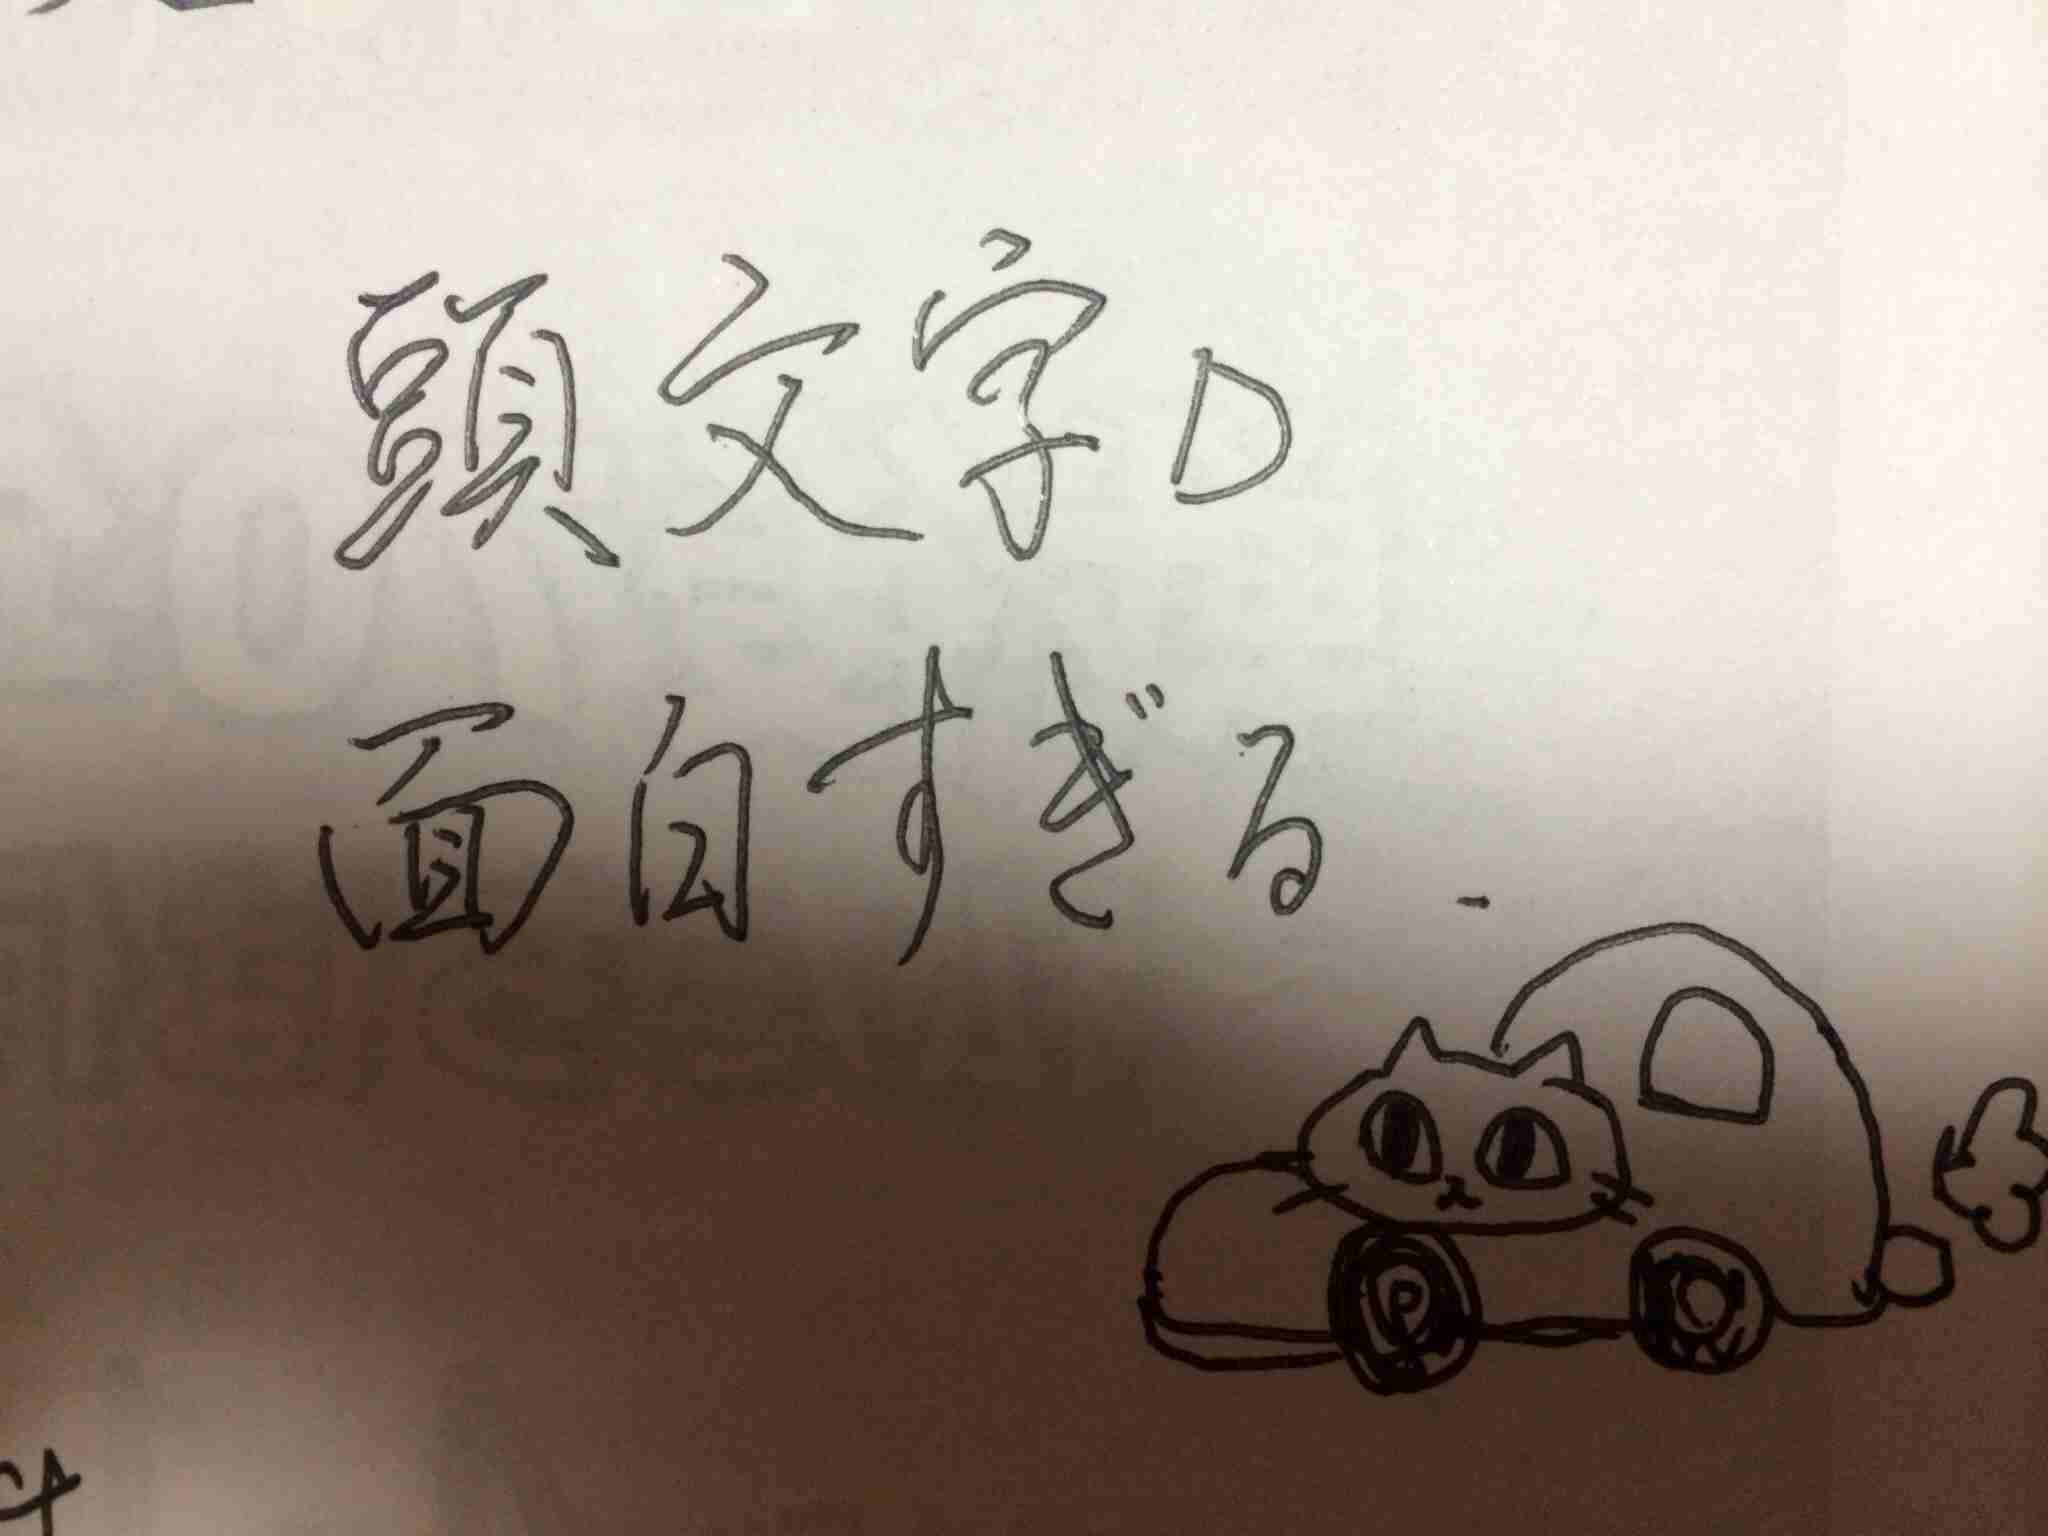 頭文字D
面白すぎる
P